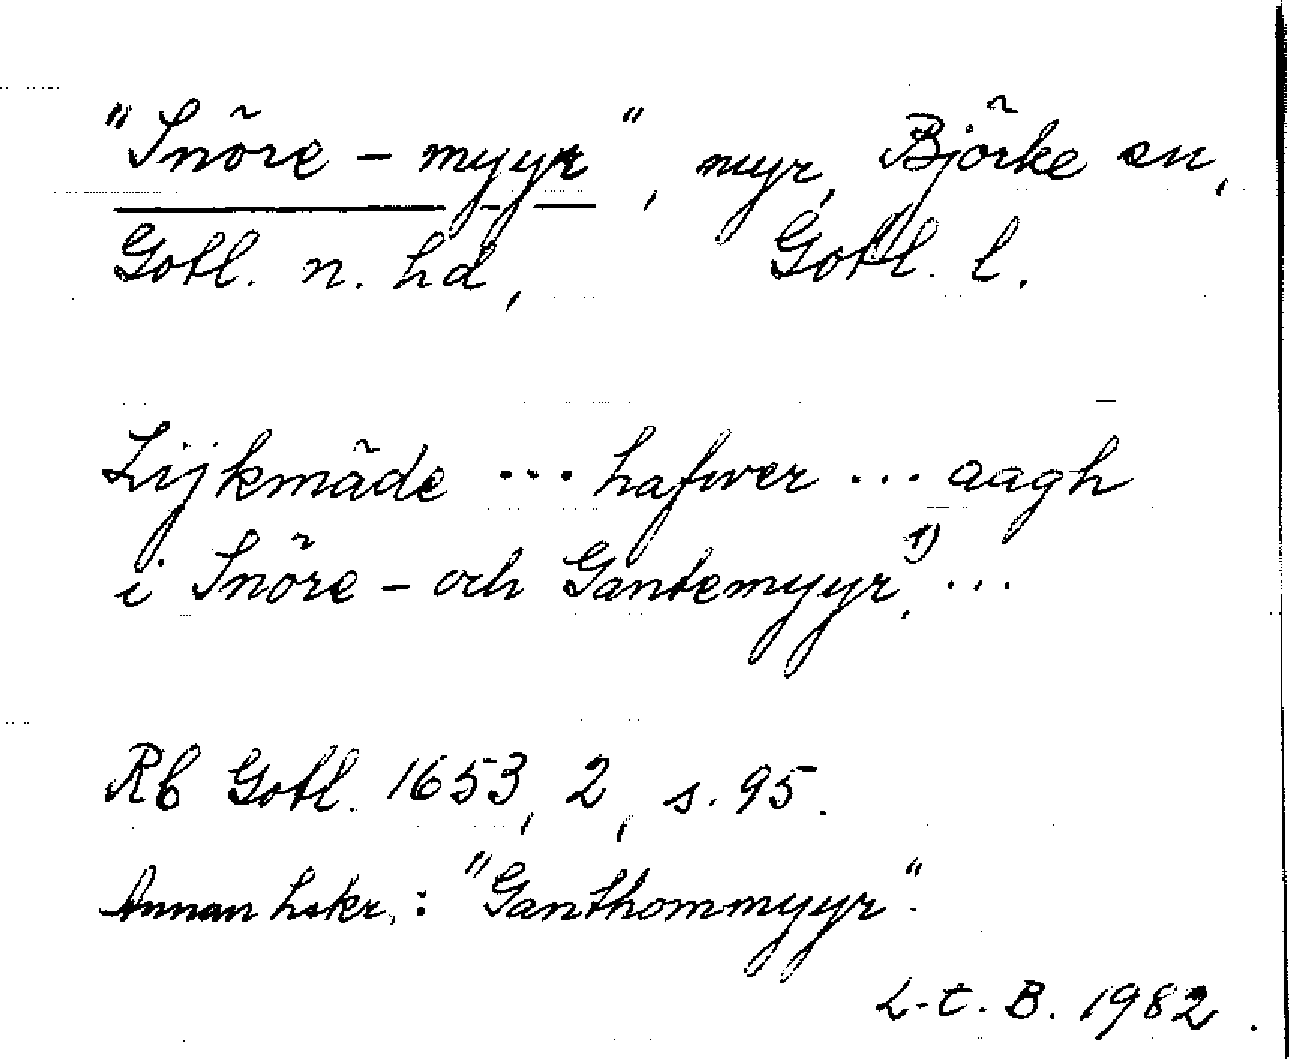 "Snöre-myyr", myr, Björke sn,
Gotl. n. hd, Gotl. l.
Lijkmäde ... hafwer ... aagh
i Snöre- och Gantemyyr.¹⁾ ...
Rb Gotl. 1653, 2, s. 95.
Annan hskr.: "Ganthommyyr".
L-t. B. 1982.